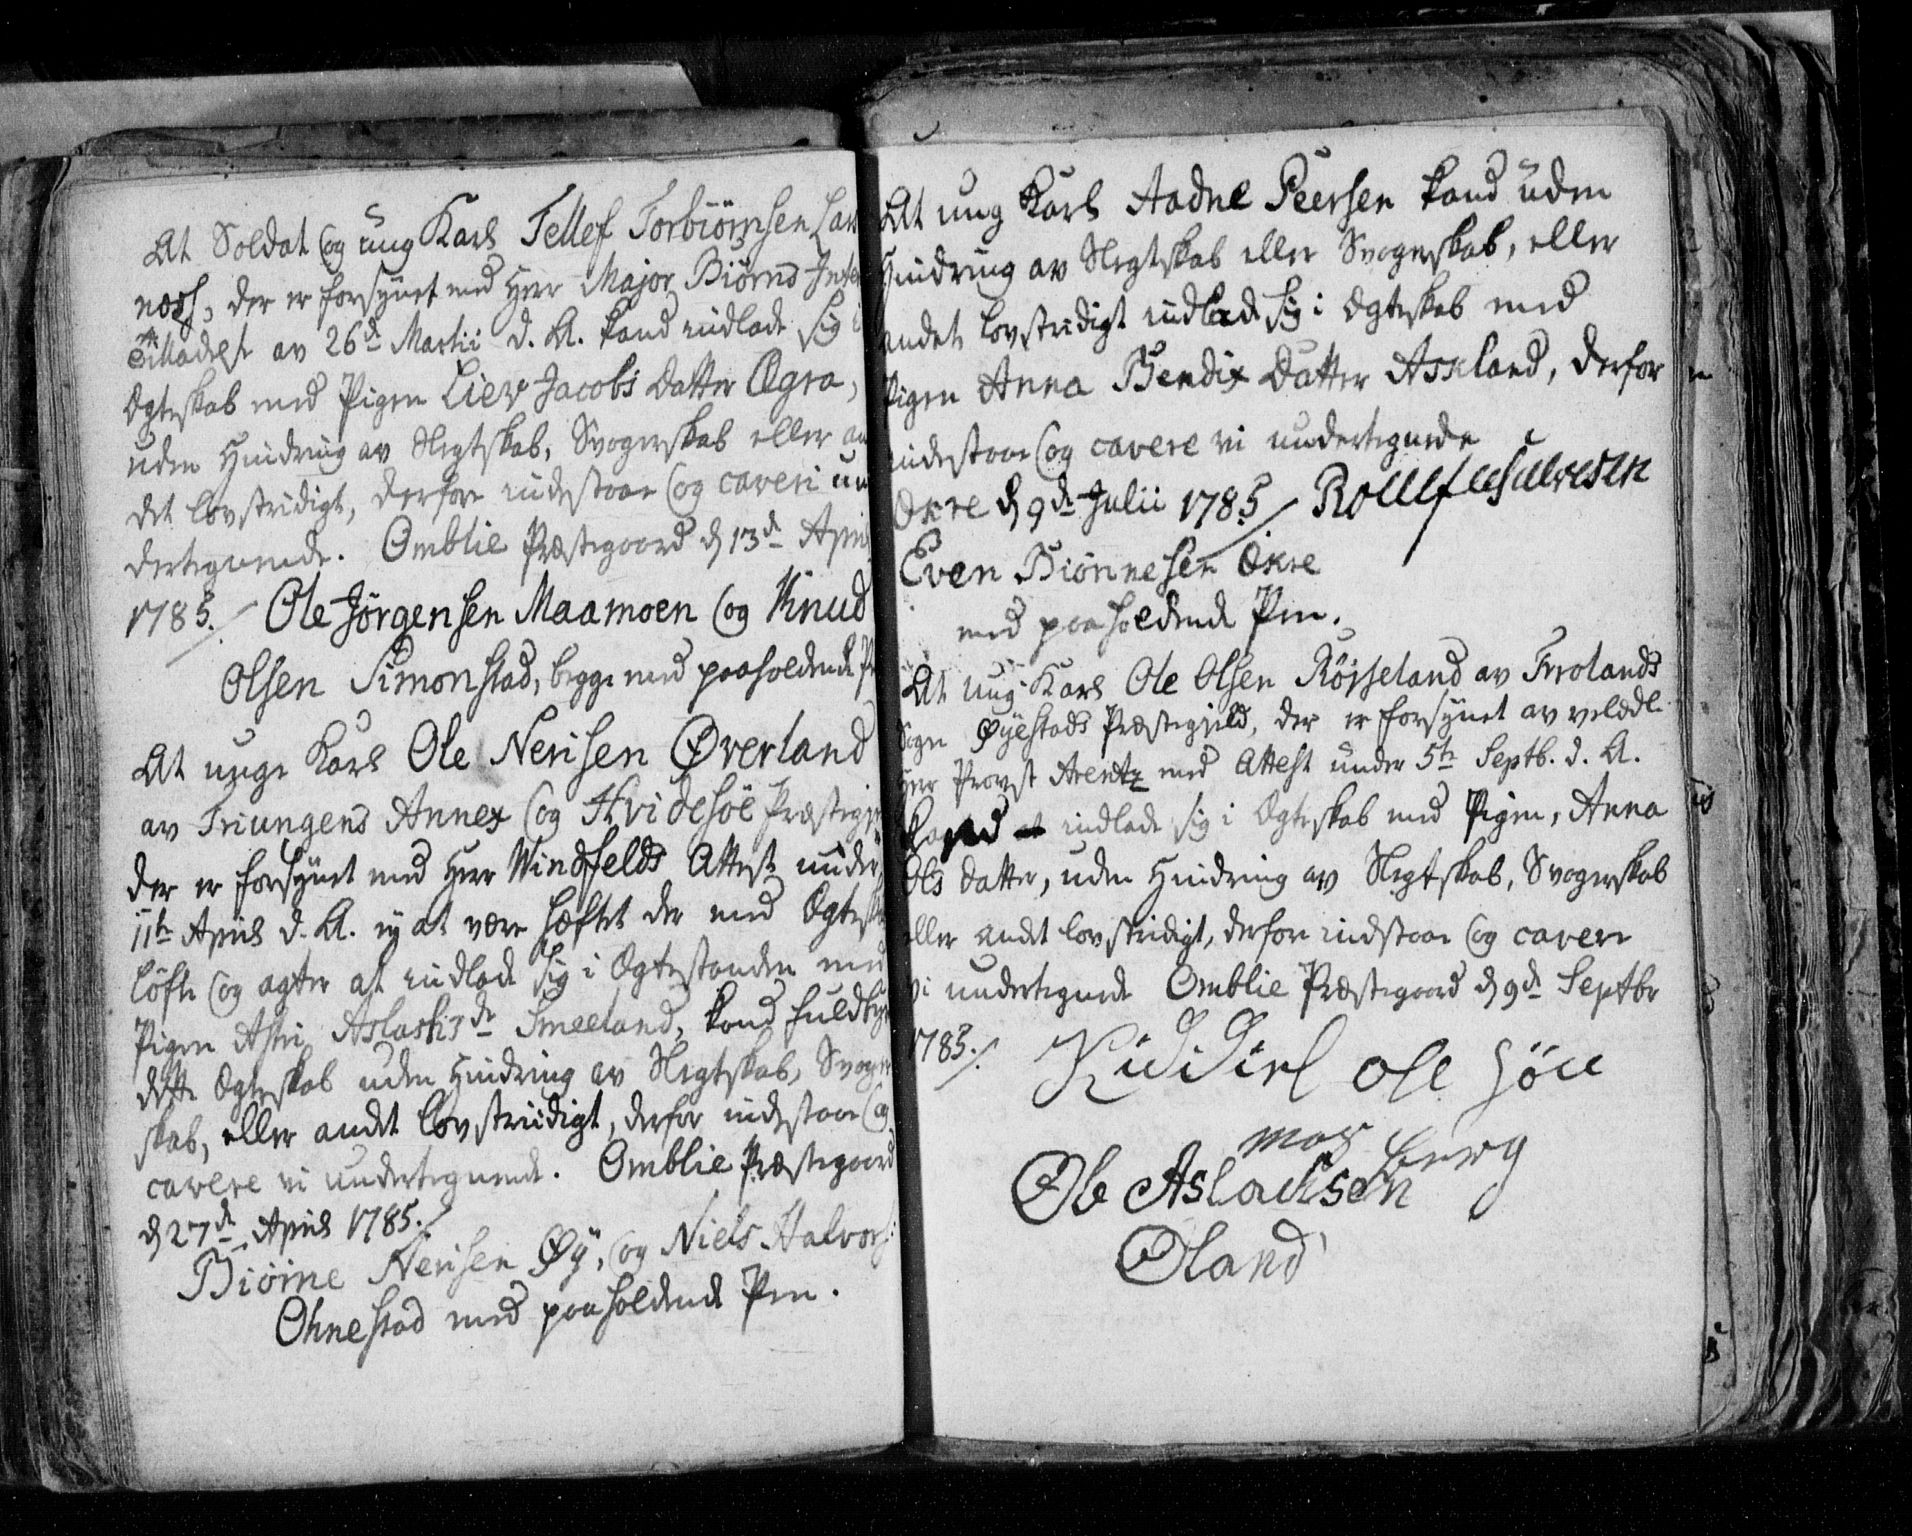 At Soldat og ung Karl Tellef Torbiörnsen Lax
næss, der er forsÿnet med Herr Major Biörns
av 26de Martii d. A. kand indlade sig i
Ægteskab med Pigen Liev Jacobs Datter Ægra,
uden Hindring av Slegtskab, Svogerskab eller an
det lovstridigt, derfore indestaae og caveri un
dertegnende. Omblie Præstegaard d 13de April
1785. Ole Jörgensen Maamoen og Knud
Olsen Simonstad, begge med paaholdende P
At unge Karl Ole Nerisen Øverland
av Triungens Annex og Hvidesöe Præstegie
der er forsÿnet med Herr Windfelds Attest under
11te April d. A. ej at være hæftet der med Ægtesk
löfte og agter at indlade sig i Ægtestanden med
Pigen Astri Aslaks dr Smeeland, kand fuldbÿr
dette Ægteskab uden Hindring av Slegtskab, Svoger
skab, eller andet lovstridigt, derfor indestaae og
cavere vi undertegnende. Omblie Præstegaard
d 27de April 1785.
Biörne Nerisen Øÿ, og Niels Halvors:
Ohnestad med paaholdende Pen.
At ung Karl Aadne Peersen kand uden
Hindring av Slegtskab eller Svogerskab, eller
andet lovstridigt indlade sig i Ægteskab med
Pigen Anna Bendix Datter Askland, derfor
indestaae og cavere vi undertegnede
Økre d 9de Julii 1785
Even Biönnesen Økre
med paaholdende Pen.
At ung Karl Ole Olsen Röisseland av Frolands
Sogn Øÿestads Præstegield, der er forsÿnet av velædle
Herr Provst Arentz med Attest under 5te Septb. d. A.
kand indlade sig i Ægteskab med Pigen, Anna
Ols datter, uden Hindring av Slegtskab, Svogerskab
eller andet lovstridigt, derfore indestaae og cavere
vi undertegnede Omblie Præstegaard d 9de Septbr
1785.
Ole Aslacksen
Øland